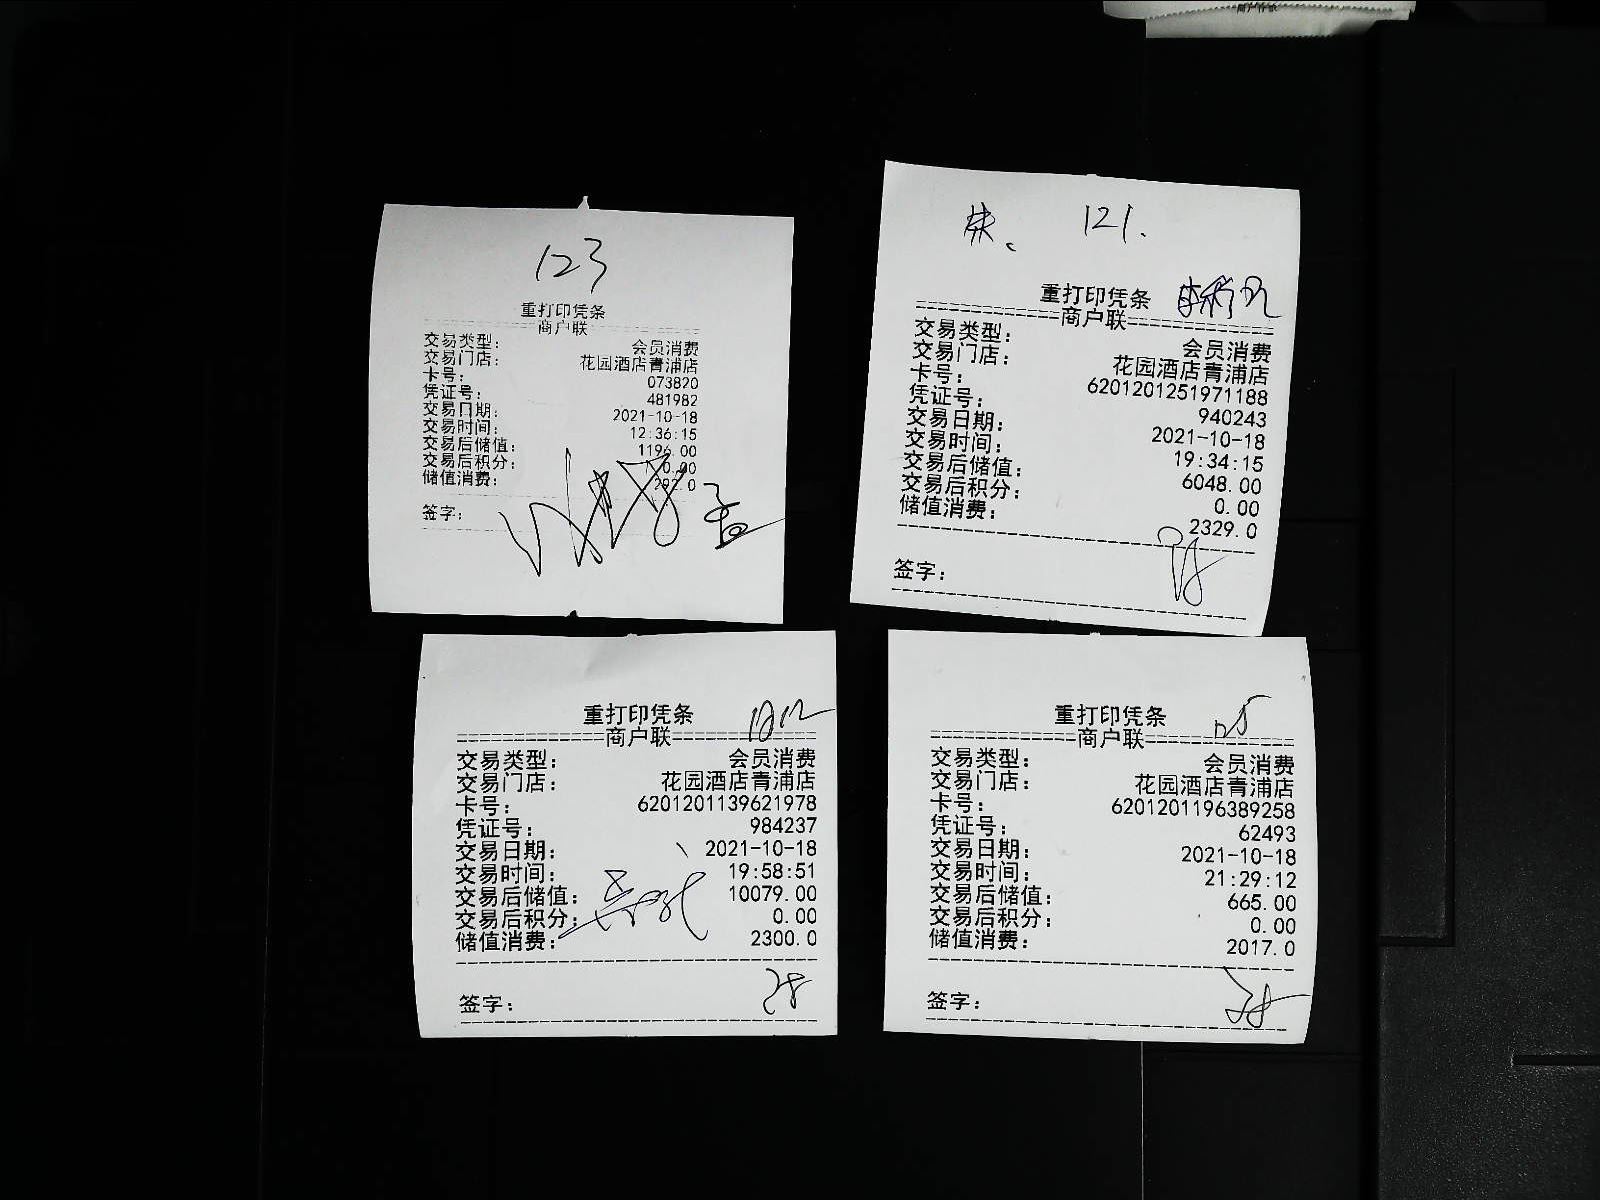 123
重打印凭条
商户联
交易类型： 会员消费
交易门店： 花园酒店青浦店
卡号： 073820
凭证号： 481982
交易日期： 2021-10-18
交易时间： 12:36:15
交易后储值： 1196.00
交易后积分： 0.00
储值消费： 292.0
签字：
121.
重打印凭条
商户联
交易类型： 会员消费
交易门店： 花园酒店青浦店
卡号： 6201201251971188
凭证号： 940243
交易日期： 2021-10-18
交易时间： 19:34:15
交易后储值： 6048.00
交易后积分： 0.00
储值消费： 2329.0
签字：
重打印凭条
商户联
交易类型： 会员消费
交易门店： 花园酒店青浦店
卡号： 6201201139621978
凭证号： 984237
交易日期： 2021-10-18
交易时间： 19:58:51
交易后储值： 10079.00
交易后积分： 0.00
储值消费： 2300.0
签字：
重打印凭条
商户联
交易类型： 会员消费
交易门店： 花园酒店青浦店
卡号： 6201201196389258
凭证号： 62493
交易日期： 2021-10-18
交易时间： 21:29:12
交易后储值： 665.00
交易后积分： 0.00
储值消费： 2017.0
签字：